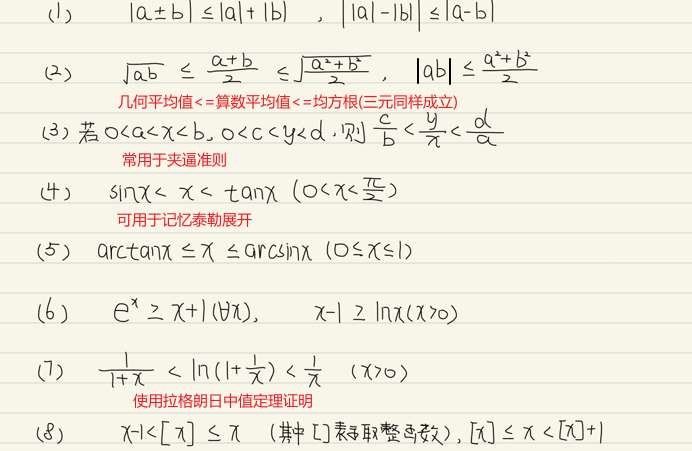 (1) |a±b| ≤ |a|+|b| , ||a|-|b|| ≤ |a-b|
(2) √ab ≤ (a+b)/2 ≤ √((a²+b²)/2) , |ab| ≤ (a²+b²)/2
几何平均值<=算数平均值<=均方根(三元同样成立)
(3) 若 0<a<x<b, 0<c<y<d, 则 c/b < y/x < d/a
常用于夹逼准则
(4) sinx < x < tanx (0<x<π/2)
可用于记忆泰勒展开
(5) arctanx ≤ x ≤ arcsinx (0≤x≤1)
(6) eˣ ≥ x+1 (∀x), x-1 ≥ lnx (x>0)
(7) 1/(1+x) < ln(1+1/x) < 1/x (x>0)
使用拉格朗日中值定理证明
(8) x-1<[x] ≤ x (其中[]表示取整函数), [x] ≤ x < [x]+1